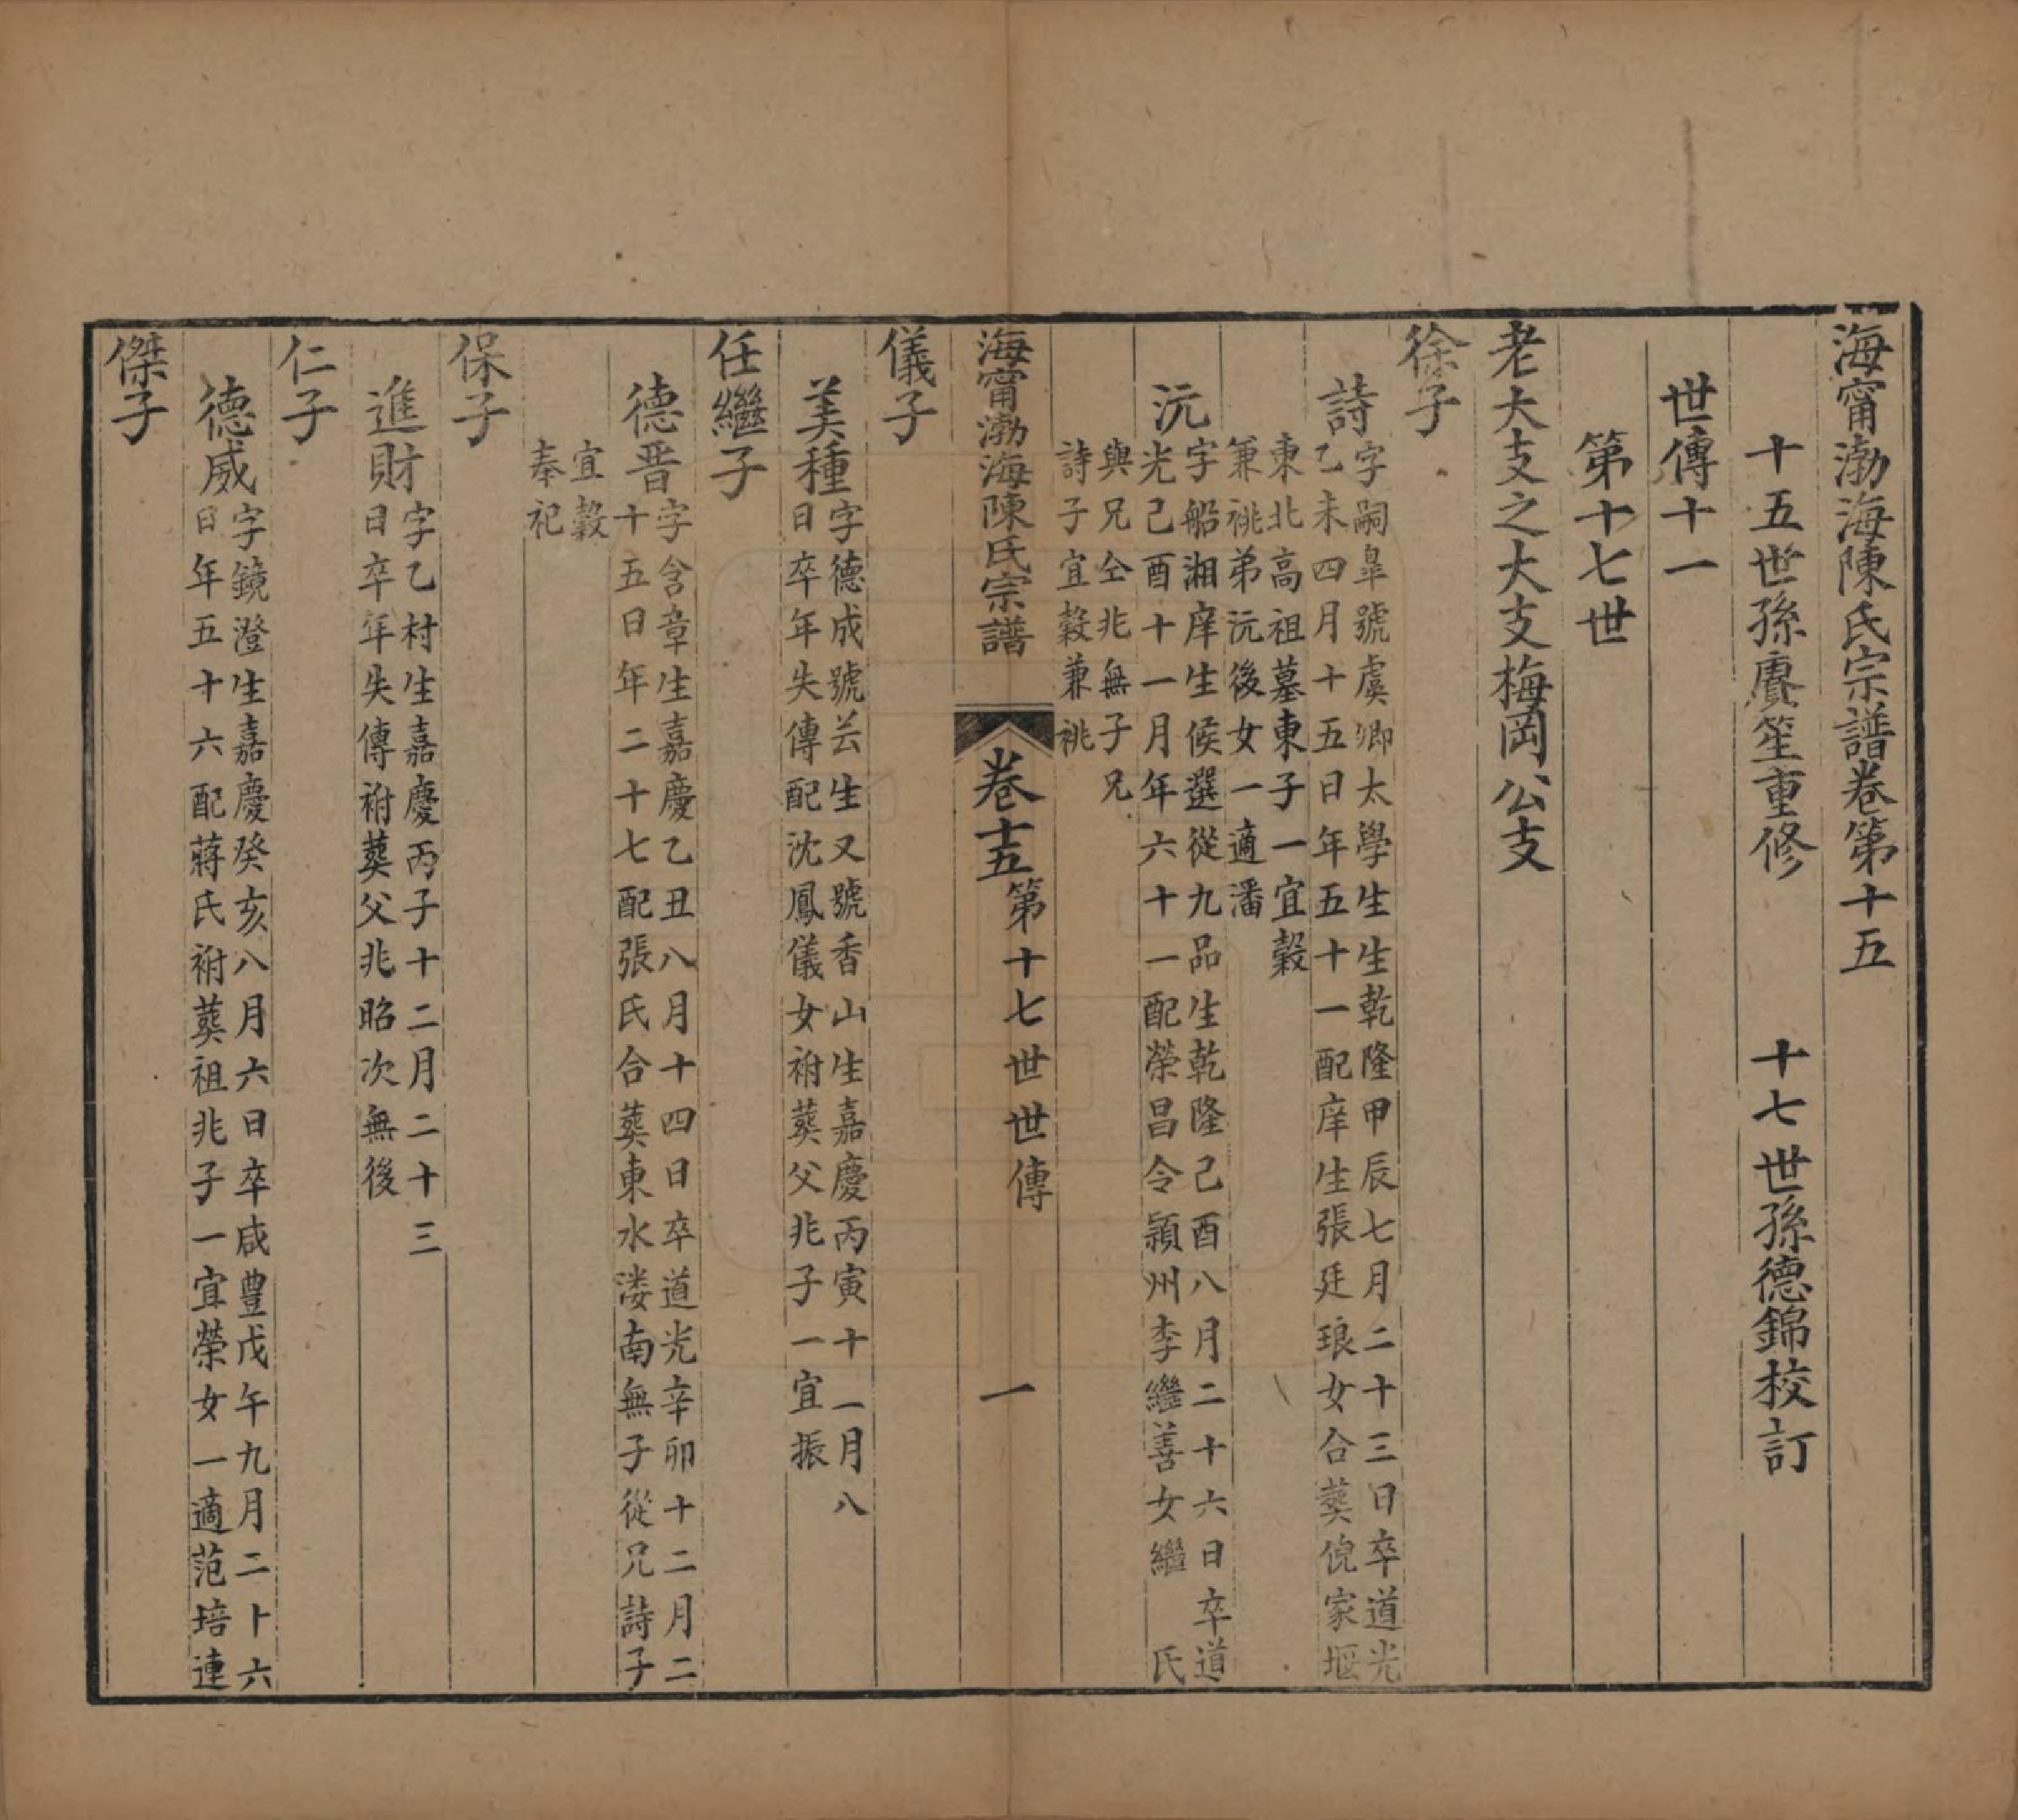 海甯渤海陳氏宗譜卷第十五
十五世孫賡笙重修　十七世孫德錦校訂
世傳十一
第十七世
老大支之大支梅岡公支
徐子
詩
字嗣皐號虞卿太學生生乾隆甲辰七月二十三日卒道光
乙未四月十五日年五十一配庠生張廷琅女合葬倪家堰
東北高祖墓東子一宜穀
兼祧弟沅後女一適潘
沅
字船湘庠生候選從九品生乾隆己酉八月二十六日卒道
光己酉十一月年六十一配榮昌令潁州李繼善女繼　氏
與兄仝兆無子兄
詩子宜穀兼祧
海甯渤海陳氏宗譜　卷十五　第十七世世傳　一
儀子
美種
字德成號芸生又號香山生嘉慶丙寅十一月八
日卒年失傳配沈鳳儀女祔葬父兆子一宜振
任繼子
德晋
字含章生嘉慶乙丑八月十四日卒道光辛卯十二月二
十五日年二十七配張氏合葬東水漊南無子從兄詩子
宜穀
奉祀
保子
進財
字乙村生嘉慶丙子十二月二十三
日卒年失傳祔葬父兆昭次無後
仁子
德威
字鏡澄生嘉慶癸亥八月六日卒咸豐戊午九月二十六
日年五十六配蔣氏祔葬祖兆子一宜榮女一適范培連
傑子